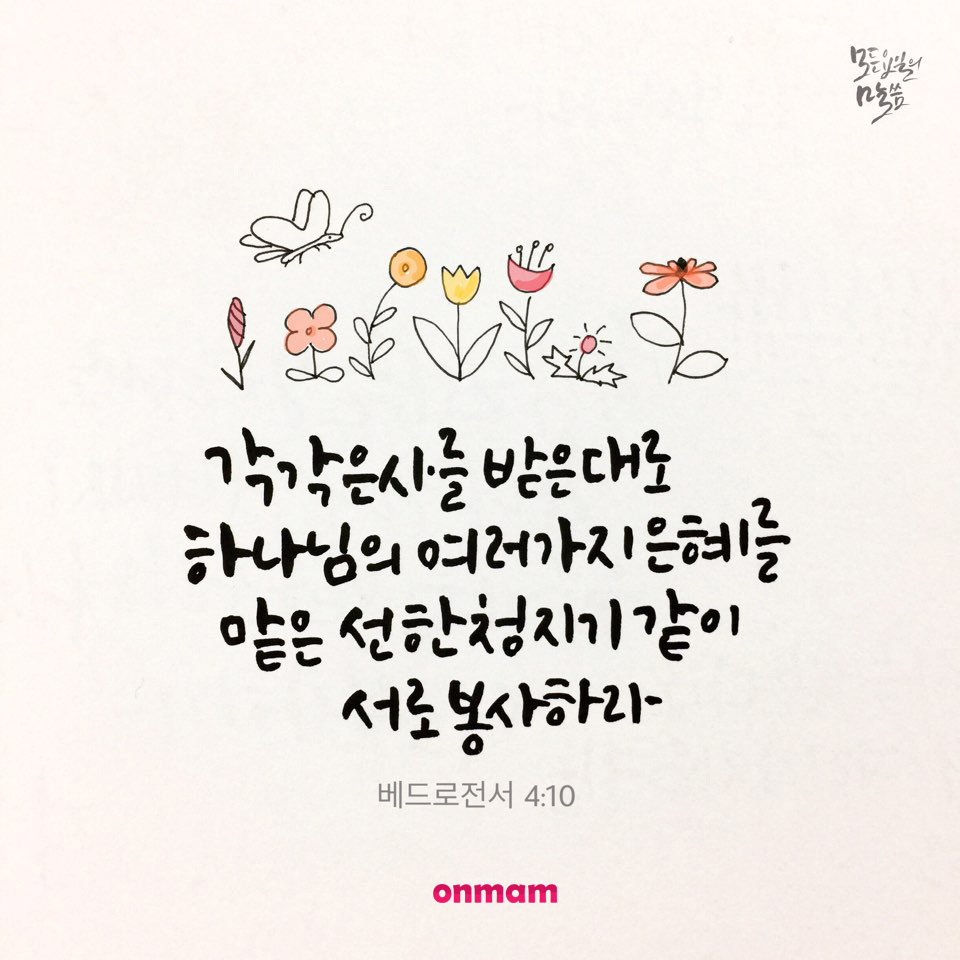 모든 입술의
말씀
각각 은사를 받은대로
하나님의 여러가지 은혜를
맡은 선한 청지기 같이
서로 봉사하라
베드로전서 4:10
onmam